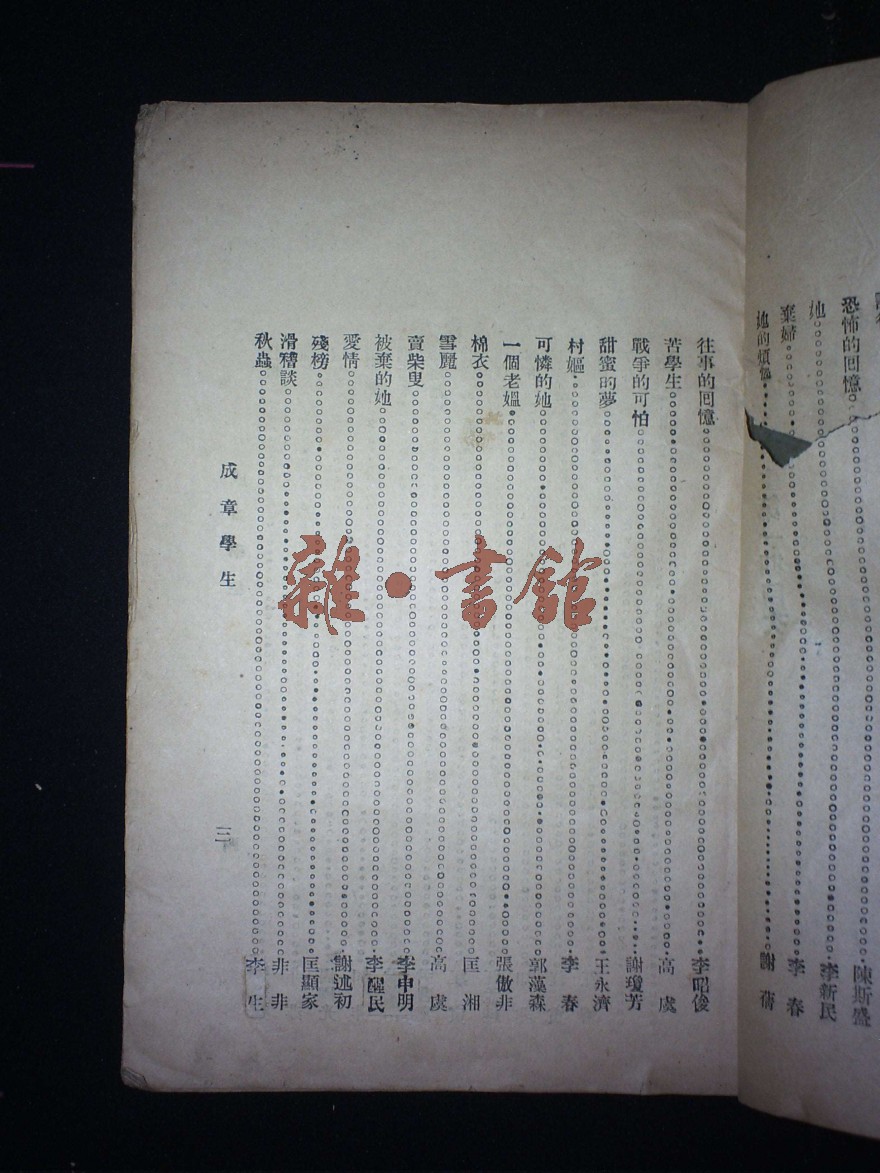 恐怖的回憶 陳斯盛
她 李新民
棄婦 李春
她的煩惱 謝蒨
往事的回憶 李昭俊
苦學生 高虞
戰爭的可怕 謝瓊芳
甜蜜的夢 王永濟
村嫗 李春
可憐的她 郭漢森
一個老嫗 張傲非
棉衣 匡湘
雪麗 高虞
賣柴叟 李申明
被棄的她 李醒民
愛情 謝述初
殘榜 匡顯家
滑稽談 非非
秋蟲 李生
成章學生
三
雜·書館